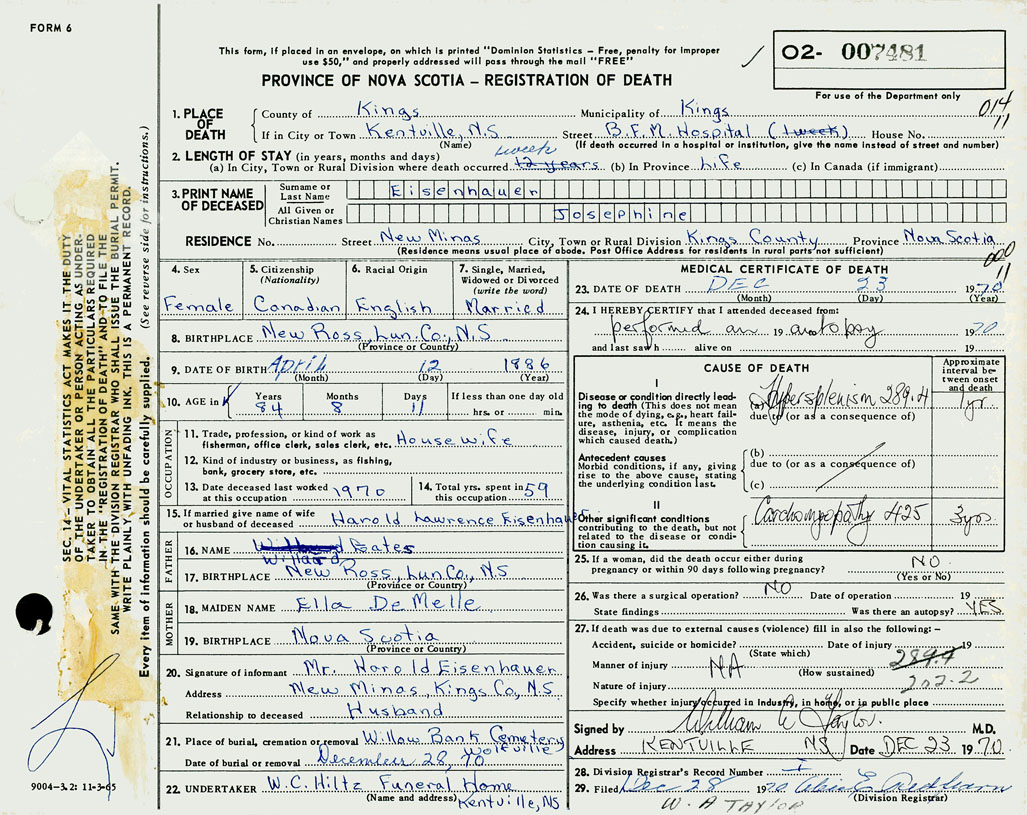 FORM 6
This form, if placed in an envelope, on which is printed "Dominion Statistics – Free, penalty for improper
use $50," and properly addressed will pass through the mail "FREE"
PROVINCE OF NOVA SCOTIA – REGISTRATION OF DEATH
02- 007481
For use of the Department only
014
11
1. PLACE OF DEATH
County of Kings Municipality of Kings
If in City or Town Kentville, N.S Street B.F.M. Hospital (1 week) House No.
(Name) (If death occurred in a hospital or institution, give the name instead of street and number)
2. LENGTH OF STAY (in years, months and days) 1 week
(a) In City, Town or Rural Division where death occurred 12 years (b) In Province Life (c) In Canada (if immigrant)
3. PRINT NAME OF DECEASED
Surname or Last Name Eisenhauer
All Given or Christian Names Josephine
RESIDENCE No. Street New Minas City, Town or Rural Division Kings County Province Nova Scotia
(Residence means usual place of abode. Post Office Address for residents in rural parts not sufficient)
000
11
4. Sex Female
5. Citizenship (Nationality) Canadian
6. Racial Origin English
7. Single, Married, Widowed or Divorced (write the word) Married
8. BIRTHPLACE New Ross, Lun. Co., N.S
(Province or Country)
9. DATE OF BIRTH April 12 1886
(Month) (Day) (Year)
10. AGE in Years Months Days If less than one day old
84 8 11 hrs. or min.
OCCUPATION
11. Trade, profession, or kind of work as fisherman, office clerk, sales clerk, etc. House wife
12. Kind of industry or business, as fishing, bank, grocery store, etc.
13. Date deceased last worked at this occupation 1970
14. Total yrs. spent in this occupation 59
15. If married give name of wife or husband of deceased Harold Lawrence Eisenhauer
FATHER
16. NAME Willard Gates
Willard
17. BIRTHPLACE New Ross, Lun Co., N.S
(Province or Country)
MOTHER
18. MAIDEN NAME Ella DeMelle
19. BIRTHPLACE Nova Scotia
(Province or Country)
20. Signature of informant Mr. Harold Eisenhauer
Address New Minas, Kings Co, N.S
Relationship to deceased Husband
21. Place of burial, cremation or removal Willow Bank Cemetery
Wolfville
Date of burial or removal December 28, 70
22. UNDERTAKER W.C. Hiltz Funeral Home
(Name and address) Kentville, NS
MEDICAL CERTIFICATE OF DEATH
23. DATE OF DEATH DEC 23 1970
(Month) (Day) (Year)
24. I HEREBY CERTIFY that I attended deceased from:
performed an 19 autopsy 1970
and last saw h alive on 19
CAUSE OF DEATH
Approximate interval between onset and death
I
Disease or condition directly leading to death (This does not mean the mode of dying, e.g., heart failure, asthenia, etc. It means the disease, injury, or complication which caused death.)
(a) Hypersplenism 289.4 1 yr.
due to (or as a consequence of)
Antecedent causes
Morbid conditions, if any, giving rise to the above cause, stating the underlying condition last.
(b)
due to (or as a consequence of)
(c)
II
Other significant conditions contributing to the death, but not related to the disease or condition causing it.
Cardiomyopathy 425 3 yrs
25. If a woman, did the death occur either during pregnancy or within 90 days following pregnancy? NO
(Yes or No)
26. Was there a surgical operation? NO Date of operation 19
State findings Was there an autopsy? YES
27. If death was due to external causes (violence) fill in also the following: –
Accident, suicide or homicide? Date of injury 19
(State which) 289.4
Manner of injury NA (How sustained)
202.2
Nature of injury
Specify whether injury occurred in Industry, in home, or in public place
Signed by William A Taylor M.D.
Address KENTVILLE NS Date DEC 23 1970
28. Division Registrar's Record Number
29. Filed Dec 28 1970
(Division Registrar)
W. A TAYLOR
SEC. 14 – VITAL STATISTICS ACT MAKES IT THE DUTY
OF THE UNDERTAKER OR PERSON ACTING AS UNDER-
TAKER TO OBTAIN ALL THE PARTICULARS REQUIRED
IN THE "REGISTRATION OF DEATH" AND TO FILE THE
SAME WITH THE DIVISION REGISTRAR WHO SHALL ISSUE THE BURIAL PERMIT.
WRITE PLAINLY WITH UNFADING INK. THIS IS A PERMANENT RECORD.
Every item of information should be carefully supplied. (See reverse side for instructions.)
9004-3.2: 11-3-65